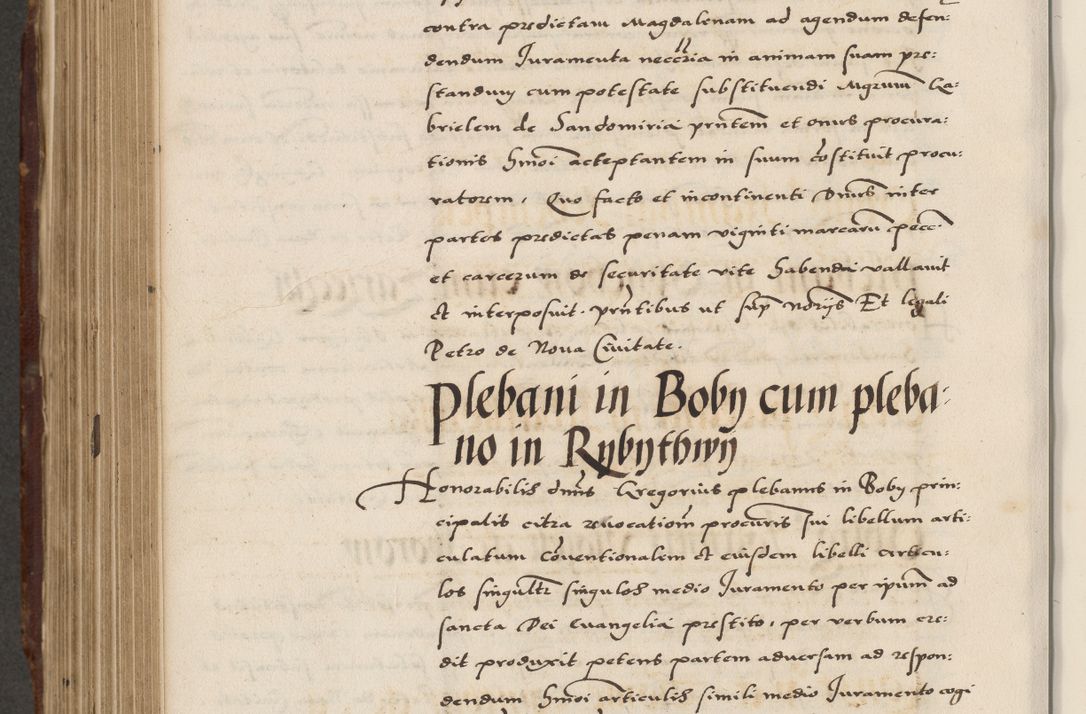 contra predictam Magdalenam ad agendum defen:
dendum Juramenta neccria in animam suam pre:
standum cum potestate substituendi Mgrum Ga:
brielem de Sandomiria prntem et onus procura:
tionis hmoi acceptantem in suum costituit procu:
ratorem, Quo facto et incontinenti Dnus inter
partes predictas penam viginti marcaru pecc:
et carcerum de securitate vite habenda vallavit
et interposuit. prntibus ut sup notrijs Et legali
Petro de Nova Civitate.
Plebani in Boby cum pleba:
no in Rybythwy
Honorabilis dnus Gregorius plebanus in Boby prin:
cipalis citra revocationem procuris sui libellum arti:
culatum coventionalem et eiusdem libelli articu:
los singultr singulos medio Juramento per ipum ad
sancta Dei Euangelia prestito, per verbum cre:
dit produxit petens partem adversam ad respon:
dendum hmoi articulis simili medio Juramento cogi